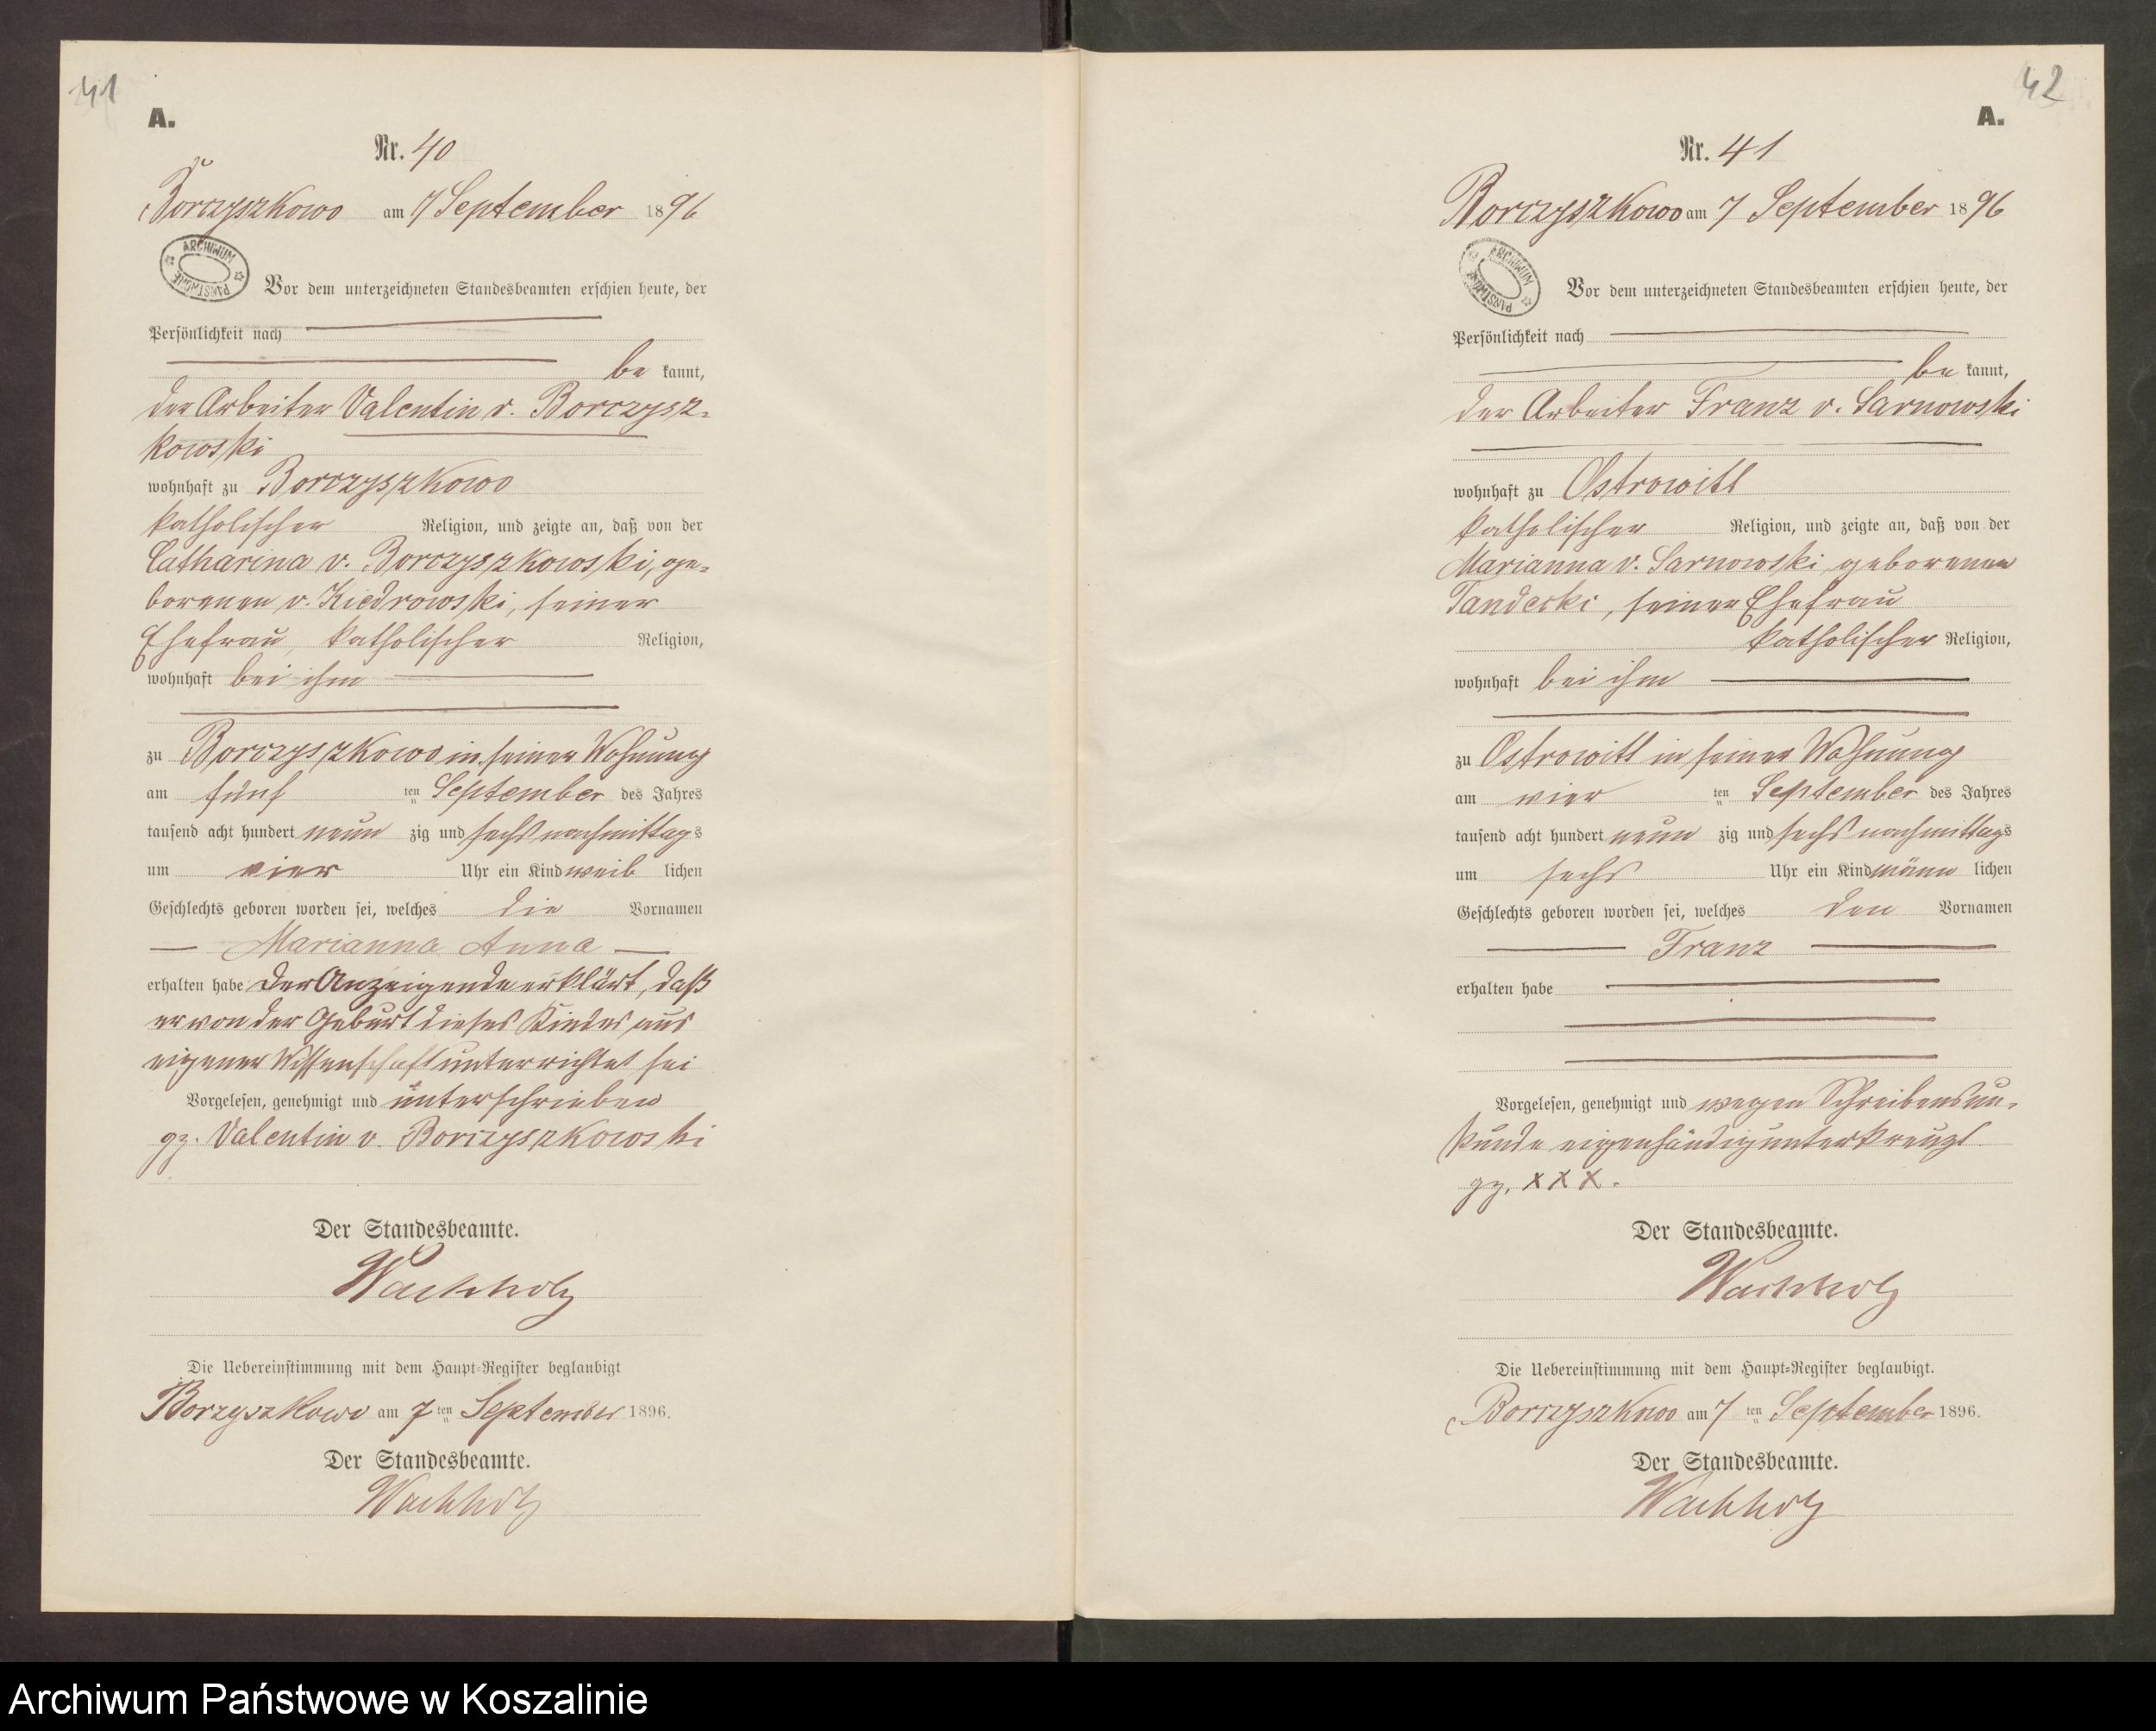 41
A.
Nr. 40
Borczyszkowo am 7 September 1896
ARCHIWUM PAŃSTWOWE
Vor dem unterzeichneten Standesbeamten erschien heute, der
Persönlichkeit nach
be kannt,
der Arbeiter Valentin v. Borczysz-
kowski
wohnhaft zu Borczyszkowo
katholischer Religion, und zeigte an, daß von der
Catharina v. Borczyszkowski, ge-
borenen v. Kiedrowski, seiner
Ehefrau, katholischer Religion,
wohnhaft bei ihm
zu Borczyszkowo in seiner Wohnung
am fünf ten September des Jahres
tausend acht hundert neun zig und sechs nachmittags
um vier Uhr ein Kind weib lichen
Geschlechts geboren worden sei, welches die Vornamen
Marianna Anna
erhalten habe Der Anzeigende erklärt, daß
er von der Geburt dieses Kindes aus
eigener Wissenschaft unterrichtet sei
Vorgelesen, genehmigt und unterschrieben
gz. Valentin v. Borczyszkowski
Der Standesbeamte.
Wachholz
Die Uebereinstimmung mit dem Haupt-Register beglaubigt
Borzyszkowo am 7 ten September 1896.
Der Standesbeamte.
Wachholz
42
A.
Nr. 41
Borczyszkowo am 7 September 1896
ARCHIWUM PAŃSTWOWE
Vor dem unterzeichneten Standesbeamten erschien heute, der
Persönlichkeit nach
be kannt,
der Arbeiter Franz v. Sarnowski
wohnhaft zu Ostrowitt
katholischer Religion, und zeigte an, daß von der
Marianna v. Sarnowski geborenen
Tandecki, seiner Ehefrau
katholischer Religion,
wohnhaft bei ihm
zu Ostrowitt in seiner Wohnung
am vier ten September des Jahres
tausend acht hundert neun zig und sechs nachmittags
um sechs Uhr ein Kind männ lichen
Geschlechts geboren worden sei, welches den Vornamen
Franz
erhalten habe
Vorgelesen, genehmigt und wegen Schreibensun-
kunde eigenhändig unterkreuzt
gz. x x x.
Der Standesbeamte.
Wachholz
Die Uebereinstimmung mit dem Haupt-Register beglaubigt.
Borczyszkowo am 7 ten September 1896.
Der Standesbeamte.
Wachholz
Archiwum Państwowe w Koszalinie